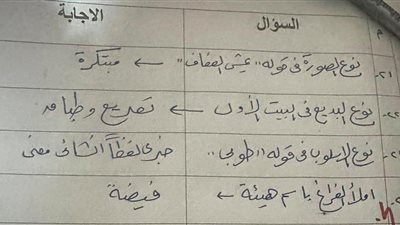 م السؤال الاجابة
٢١- نوع الصورة فى قوله "عش العفاف" ← مبتكرة
٢٢- نوع البديع فى البيت الأول ← تصريع و طباق
نوع الاسلوب فى قوله "طوبى" خبرى لفظاً انشائى معنى
املأ الفراغ باسم هيئة ← فيضة